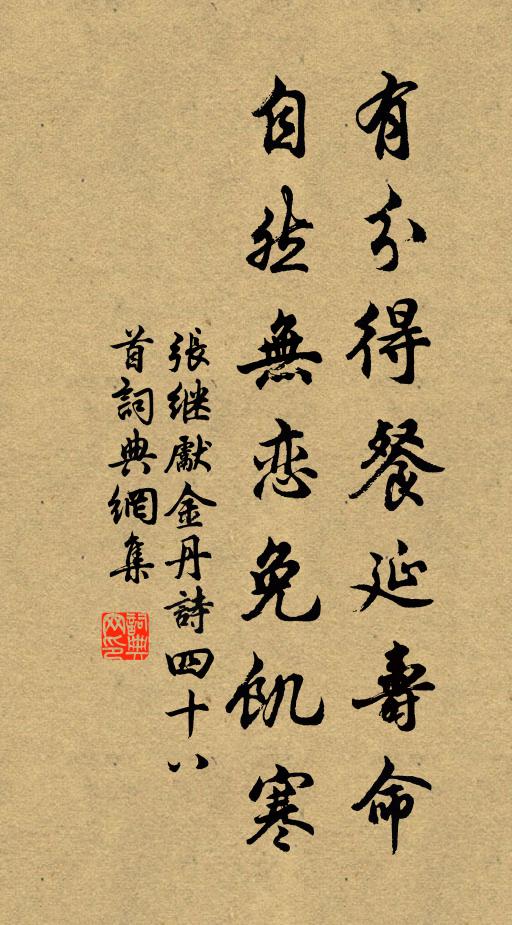 有分得餐延壽命
自然無恋免飢寒
張继獻金丹詩四十八
首詞典網集
詞典
网印